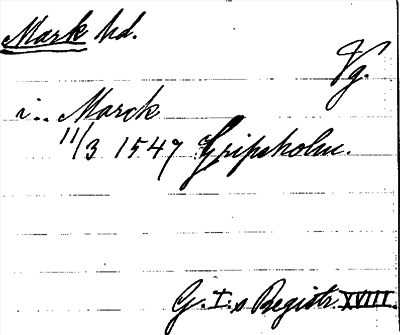 Mark hd.
Vg.
i.. Marck
11/3 1547 Gripsholm.
G. I.s Registr. XVIII.